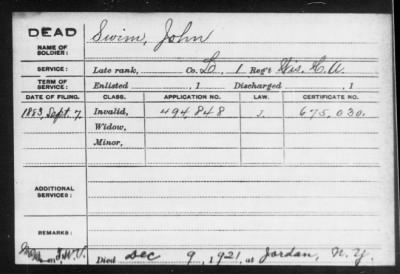 DEAD
NAME OF SOLDIER: Swim, John
SERVICE: Late rank, Co. L, 1 Reg't Wis. H.A.
TERM OF SERVICE: Enlisted , 1 Discharged , 1
DATE OF FILING. CLASS. APPLICATION NO. LAW. CERTIFICATE NO.
1883, Sept. 7 Invalid, 494.848 675,030.
Widow,
Minor,
ADDITIONAL SERVICES:
REMARKS:
Died Dec 9, 1921, at Jordan, N.Y.